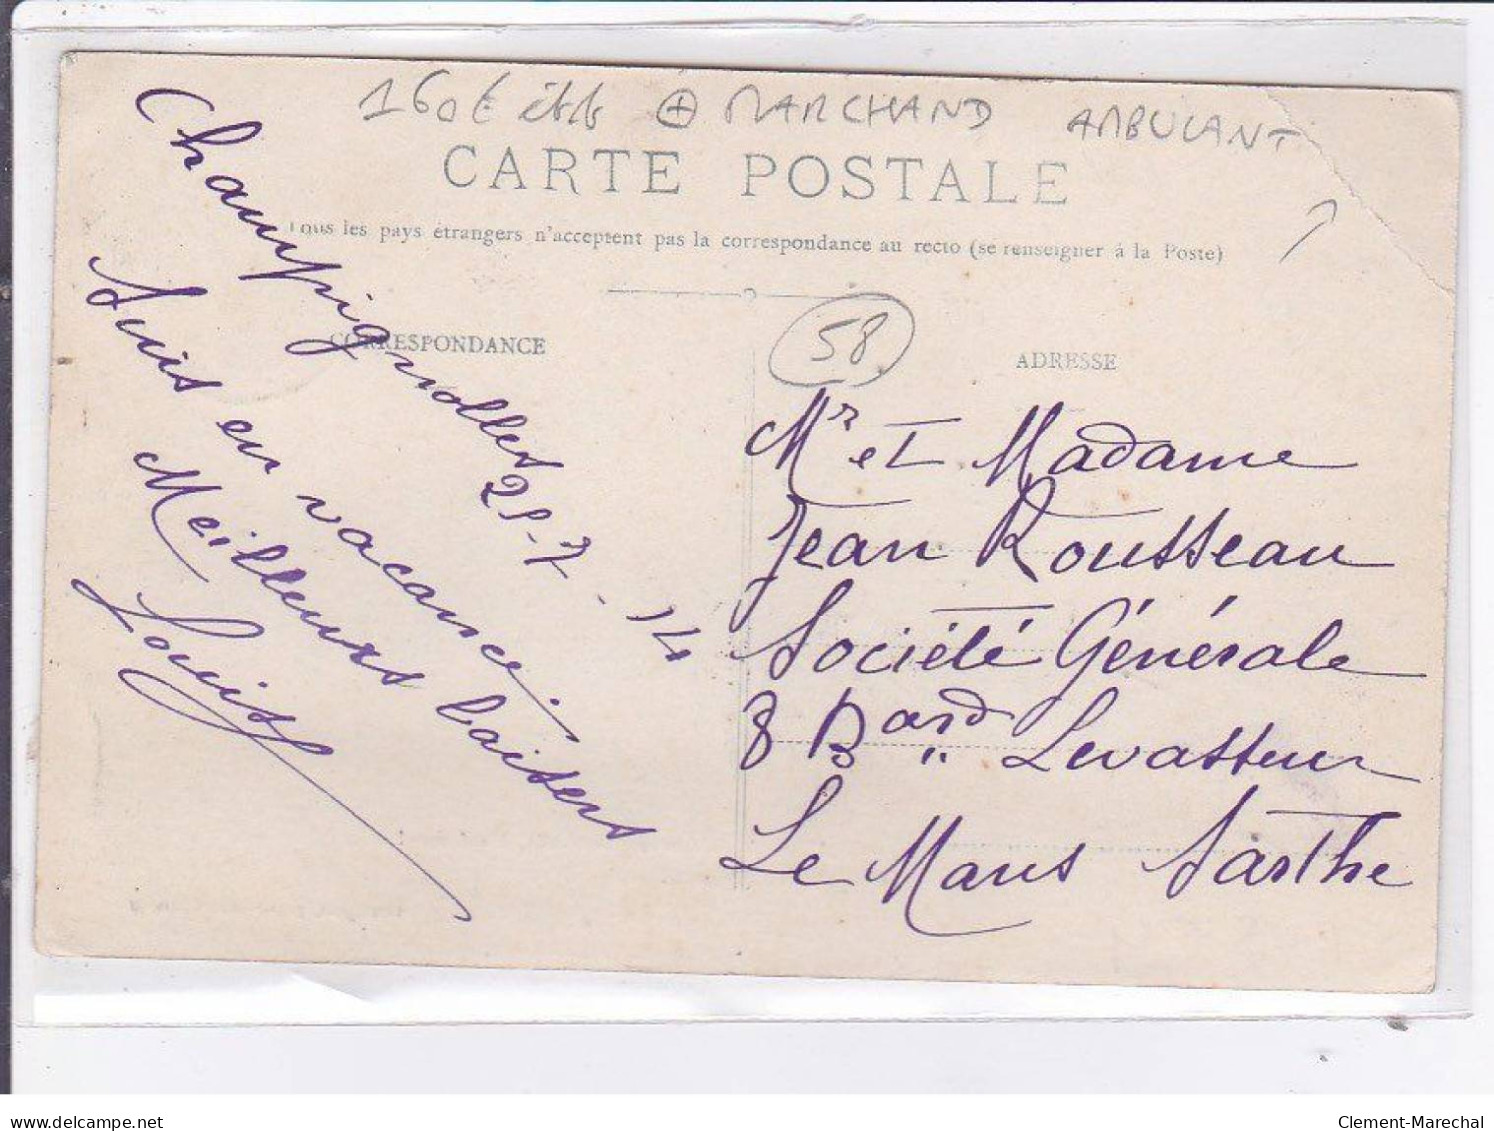 160€ ⊕ MARCHAND AMBULANT
CARTE POSTALE
Tous les pays étrangers n'acceptent pas la correspondance au recto (se renseigner à la Poste)
58
CORRESPONDANCE
ADRESSE
Champignolles 25-7-14
Suis en vacance.
Meilleurs baisers
Louis
Mr et Madame
Jean Rousseau
Société Générale
8 Bard Levasseur
Le Mans Sarthe
delcampe.net
Clement-Marechal